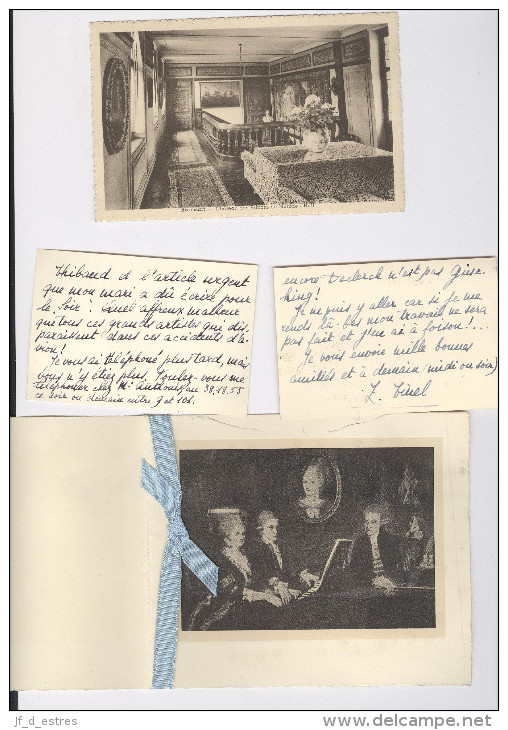 Thibaud et l'article urgent
que mon mari a dû écrire pour
le "Soir". Quel affreux malheur
que tous ces grands artistes qui dis-
paraissent dans ces accidents d'a-
vion!
Je vous ai téléphoné plus tard, mais
vous n'étiez plus. Voulez-vous me
téléphoner chez Me Anthoni, au 38.18.55
ce soir ou demain entre 9 et 10h.
encore Declerck n'est pas Giese-
king!
Je ne puis y aller car si je me
rends là-bas mon travail ne sera
pas fait et j'en ai à foison!...
Je vous envoie mille bonnes
amitiés et à demain (midi ou soir)
jf_d_estres
http://www.delcampe.net